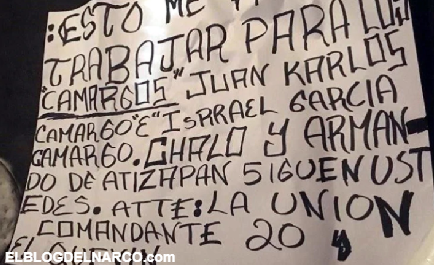 :ESTO ME
TRABAJAR PARA LOS
"CAMARGOS" JUAN KARLOS
CAMARGO "E" ISRRAEL GARCIA
CAMARGO. CHALO Y ARMAN-
DO DE ATIZAPAN SIGUEN UST
EDES. ATTE: LA UNION
COMANDANTE 20 y
EL
ELBLOGDELNARCO.com